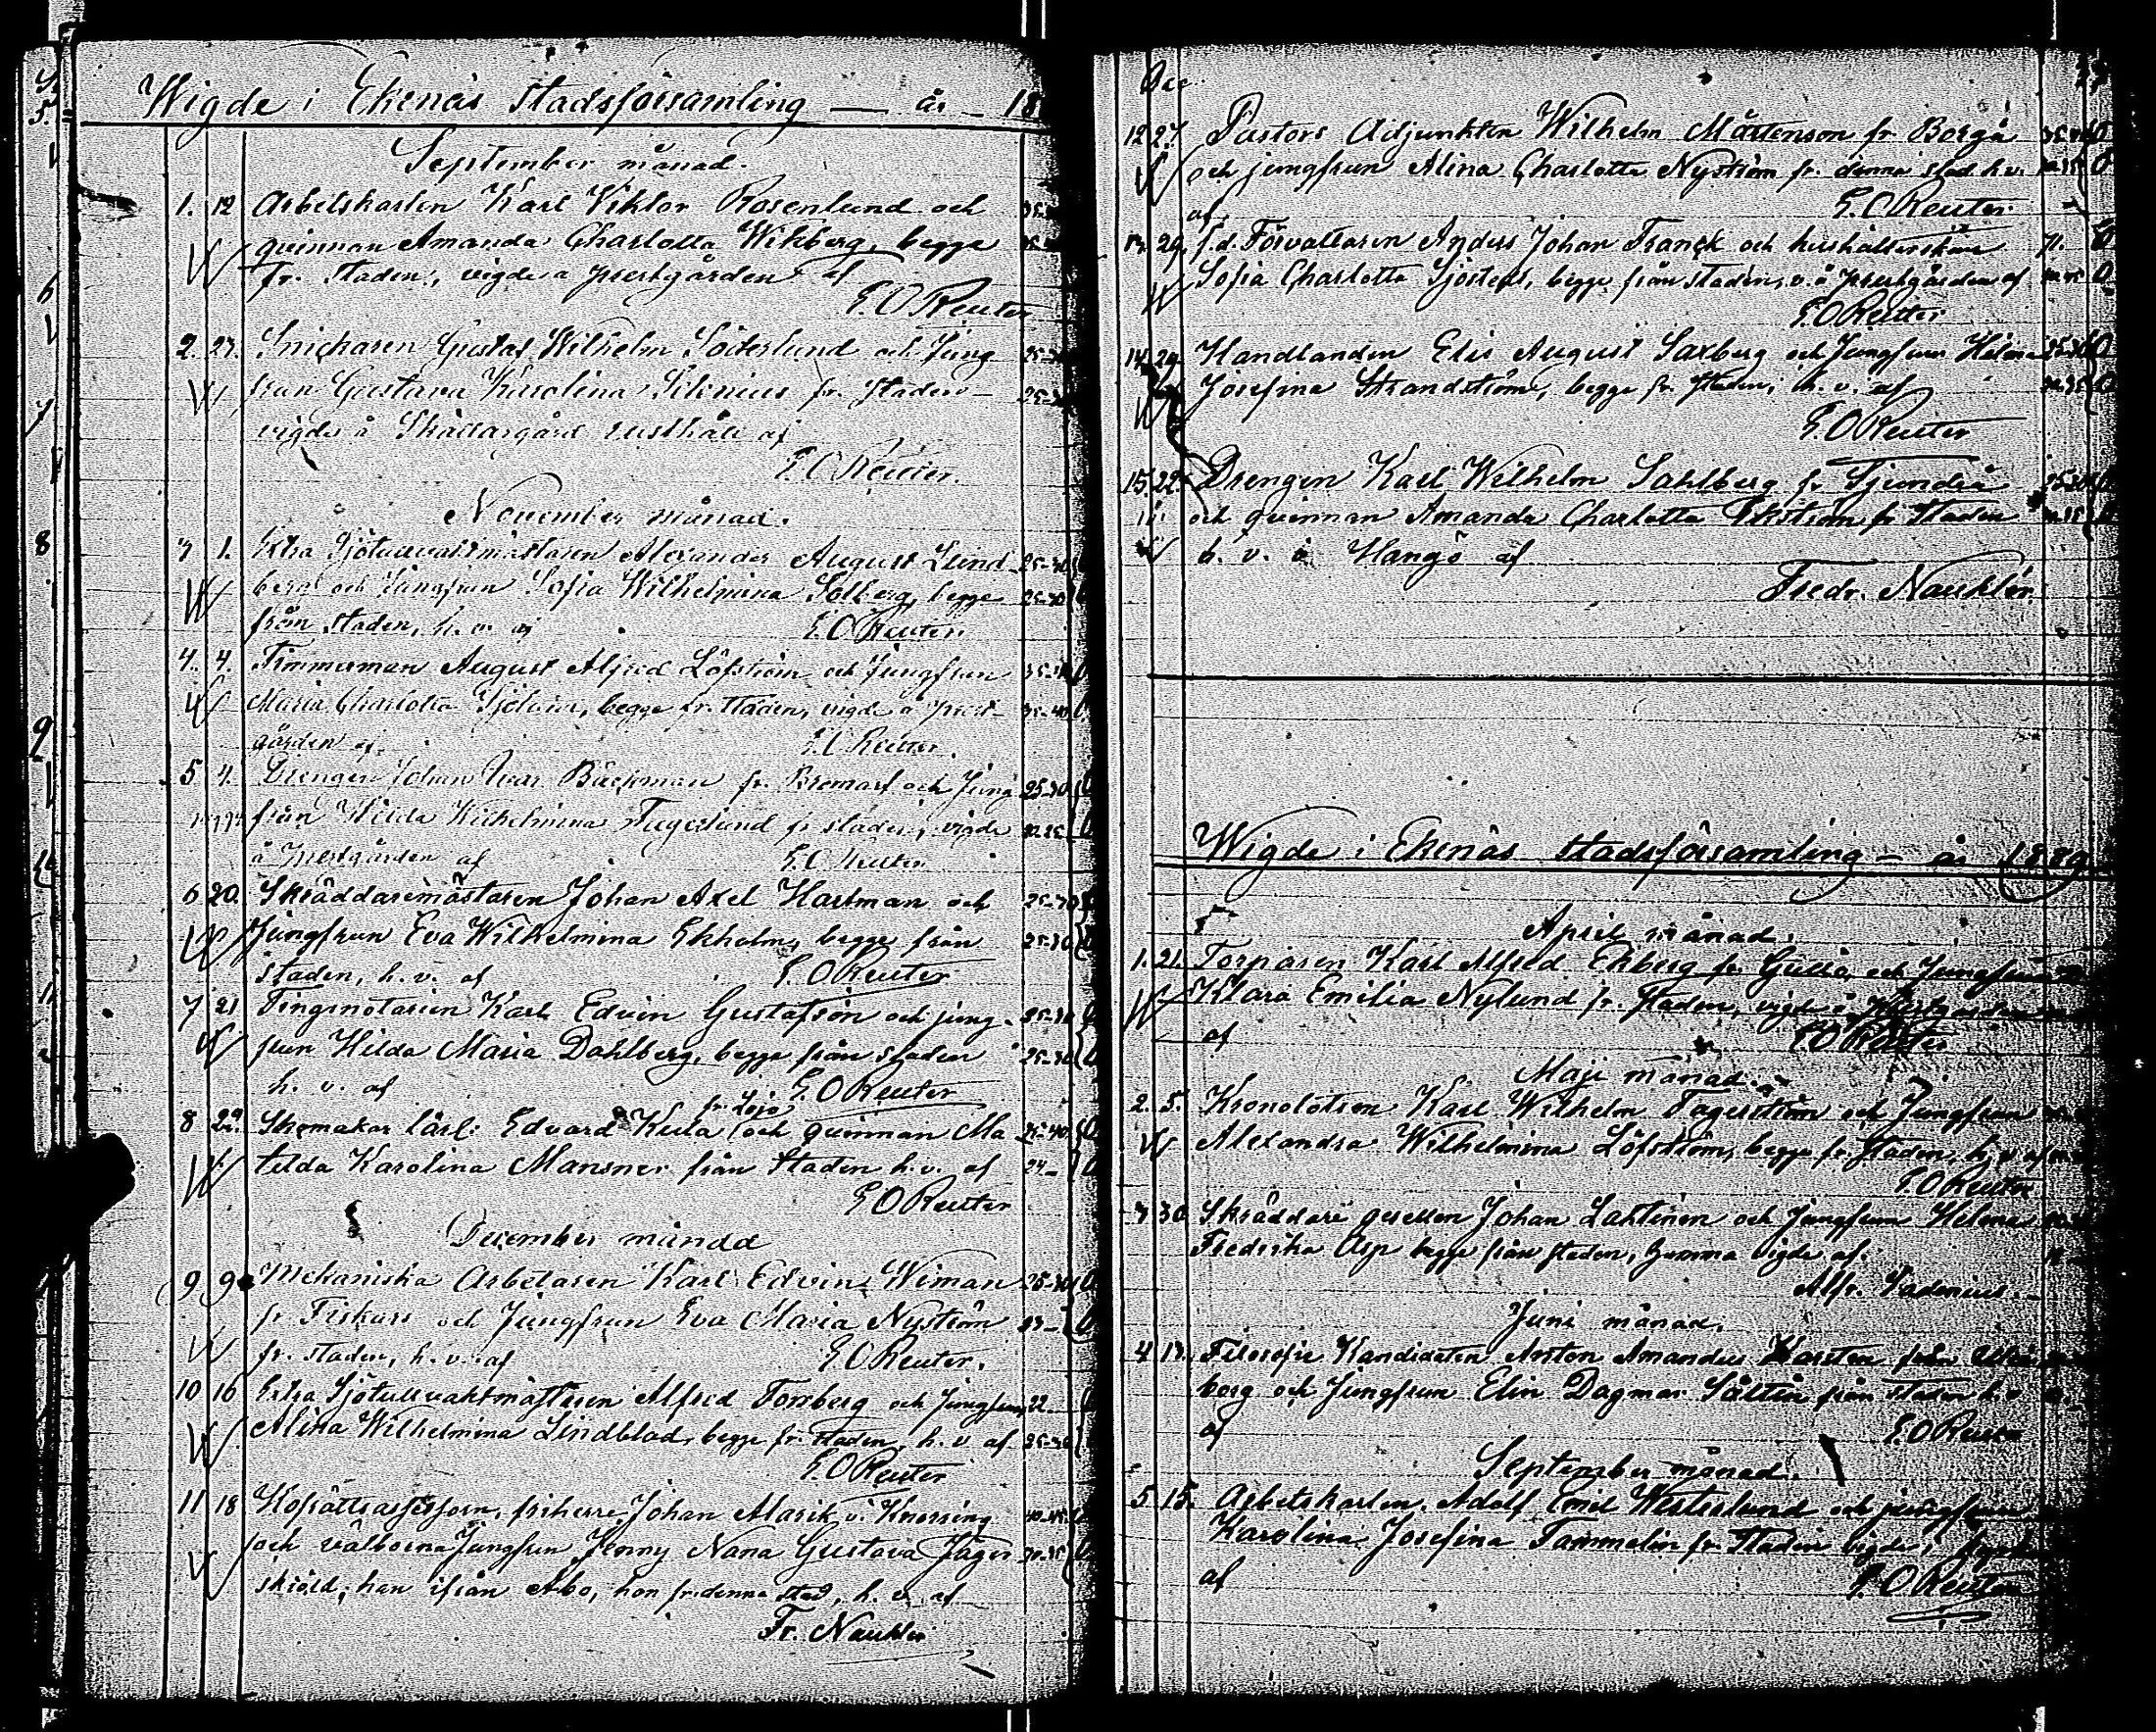 Wigde i Ekenäs Stadsförsamling — år — 18
September månad.
1. 12 Arbetskarlen Karl Viktor Rosenlund och
qvinnan Amanda Charlotta Wikberg, begge
fr. staden, vigde å prestgården af
E. O Reuter
2. 27. Snickaren Gustaf Wilhelm Söderlund och Jung
frun Gustava Karolina Silenius fr. staden
vigde å rusthåll af
E. O Reuter.
November månad.
3 1. Extra Sjötullvaktmästaren Alexander August Lind- 25-30
berg och Jungfrun Sofia Wilhelmina Solberg, begge 25-30
från staden, h. v. af E. O Reuter.
4. 4. Timmerman August Alfred Löfström och Jungfrun
Maria Charlotta begge fr. staden, vigde å prest- 35-40
gården af. E. O Reuter.
5 4. Drengen Johan Ivar Bäckman fr. Bromarf och Jung 25-30
frun Hilda Wilhelmina Fagerlund fr staden, vigde
å prestgården af E. O Reuter
6 20. Skräddaremästaren Johan Axel Hartman och 25-30
Jungfrun Eva Wilhelmina Ekholm, begge från 25-30
staden, h. v. af E. O Reuter
7 21 Tingsnotarien Karl Edvin Gustafson och jung- 25-30
frun Hilda Maria Dahlberg, begge från staden 25-30
h. v. af E. O Reuter
fr. Lojo
8 Skomakar lärl: Edvard Kula och qvinnan Ma 35-40
tilda Karolina Mansner från Staden h. v. af 24-
E O Reuter
December månad
9 9 Mekaniska Arbetaren Karl Edvin Wiman 25-30
fr Fiskars och Jungfrun Eva Maria Nyström
fr. staden, h. v. af E O Reuter.
10 16 Extra Sjötullvaktmästaren Alfred Forsberg och Jungfrun 22
Alina Wilhelmina Lindblad, begge fr. staden, h. v. af. 25-30
E. O Reuter
11 18 Hofrättsassessorn, friherre Johan Alarik v. Knorring 40-45
och välborna Jungfrun Jenny Nana Gustava Jäger 30-35
skiöld, han ifrån Åbo, hon fr. denna stad, h. v. af
Fr. Naukler
Dec.
12 27. Pastors Adjunkten Wilhelm Mårtenson fr Borgå
och jungfrun Alina Charlotta Nyström fr. denna stad h. v.
af. E. O Reuter.
13. 29. f.d. Förvaltaren Anders Johan Franck och hushållerskan 71.
Sofia Charlotta Sjöstedt, begge från staden, v. å prestgården af
E. O Reuter
14 29 Handlanden Elis August Saxberg och Jungfrun Helena
Josefina Strandström, begge fr. staden, h. v. af
E. O Reuter
15. 22. Drengen Karl Wilhelm Sahlberg fr Sjundeå
och qvinnan Amanda Charlotta Ekström fr staden
h. v. i Hangö af
Fredr. Nauklér.
Wigde i Ekenäs stadsförsamling — år 1889
April månad.
1. 21. Torparen Karl Alfred Ekberg fr och Jungfrun
Klara Emilia Nylund fr. Staden, vigde å
af E. O Reuter
Maji månad.
2. 5. Kronolotsen Karl Wilhelm Fagerström och Jungfrun
Alexandra Wilhelmina Löfström, begge fr. staden, h. v af
E. O Reuter
3 30 Skräddare gesellen Johan Lahtinen och Jungfrun Helena
Fredrika Asp begge från staden, hemma vigde af.
Alfr. Sadenius.
Juni månad.
4 13. Filosofie Kandidaten Anton Amandus Karsten från
borg och Jungfrun Elin Dagmar från staden h. v.
af E. O Reuter
September månad.
5 15. Arbetskarlen Adolf Emil Westerlund och jungfrun
Karolina Josefina Tammelin fr. Staden vigde i
af E. O Reuter